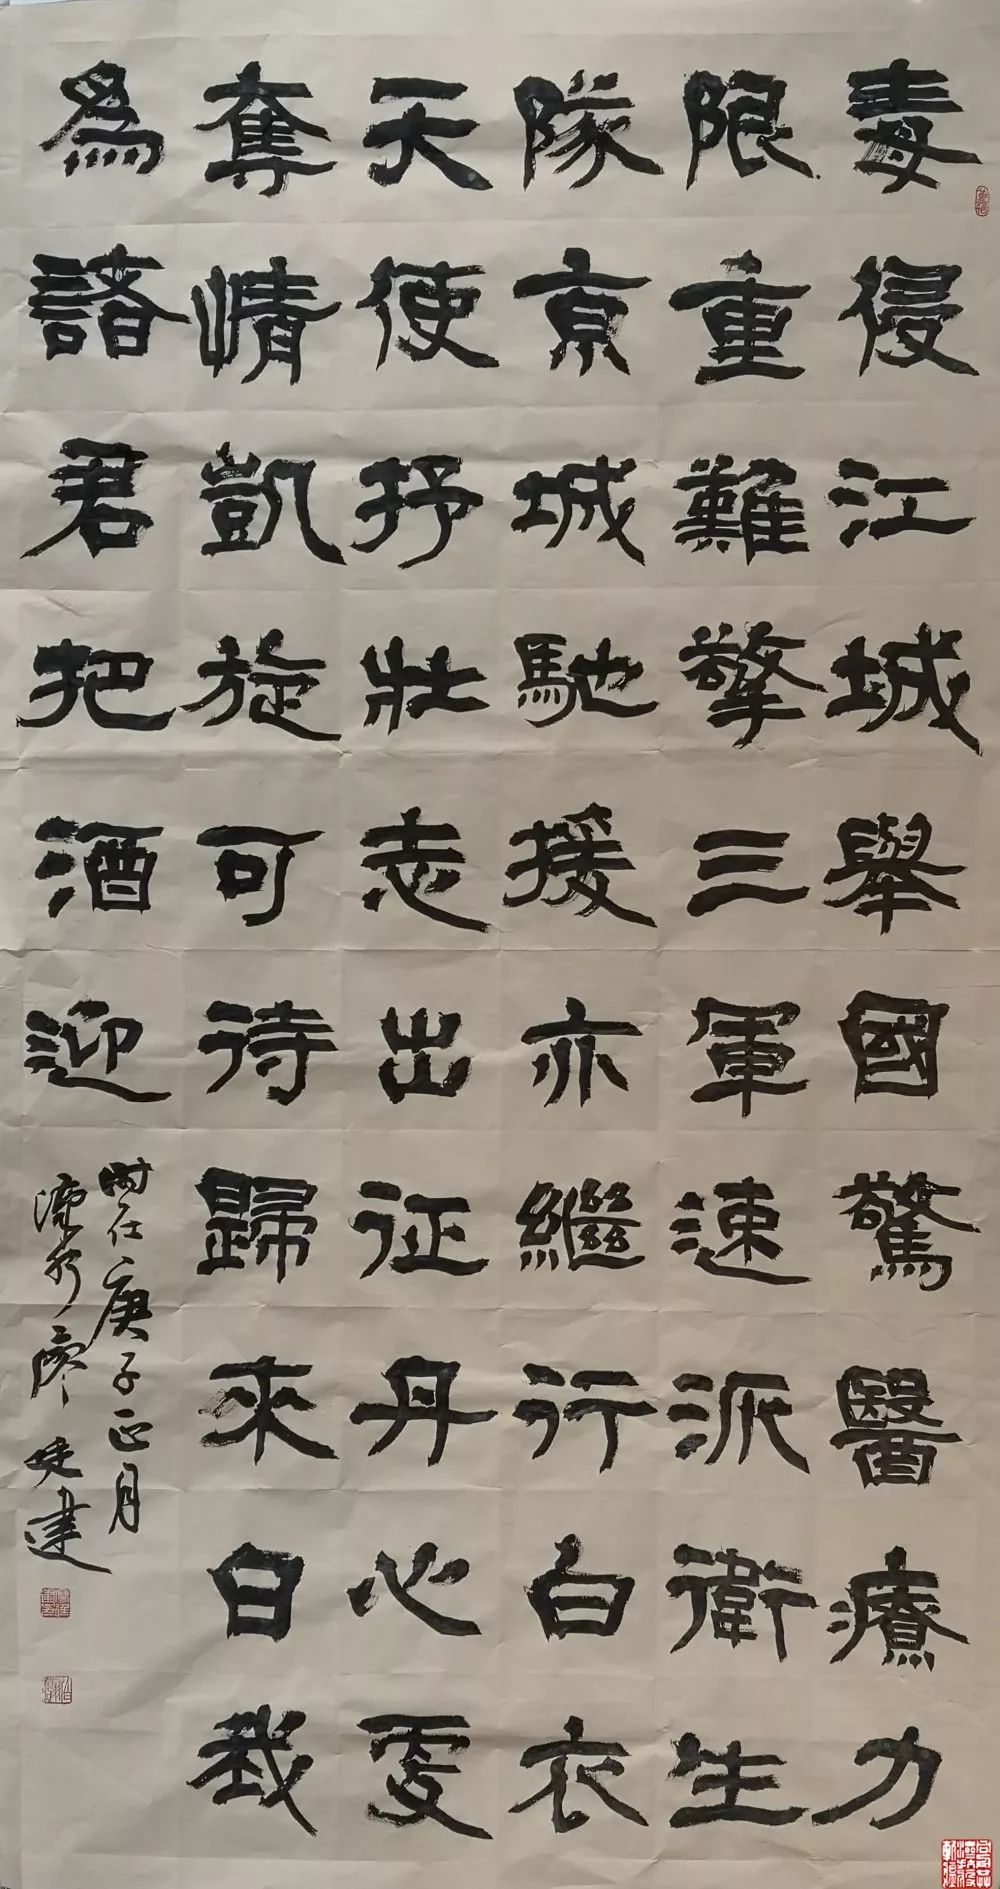 毒侵江城舉國驚醫療力
限重難擎三軍速派衛生
隊京城馳援亦繼行白衣
天使抒壯志出征丹心
奪情凱旋可待歸來日我
為諸君把酒迎
時在庚子正月
廖建